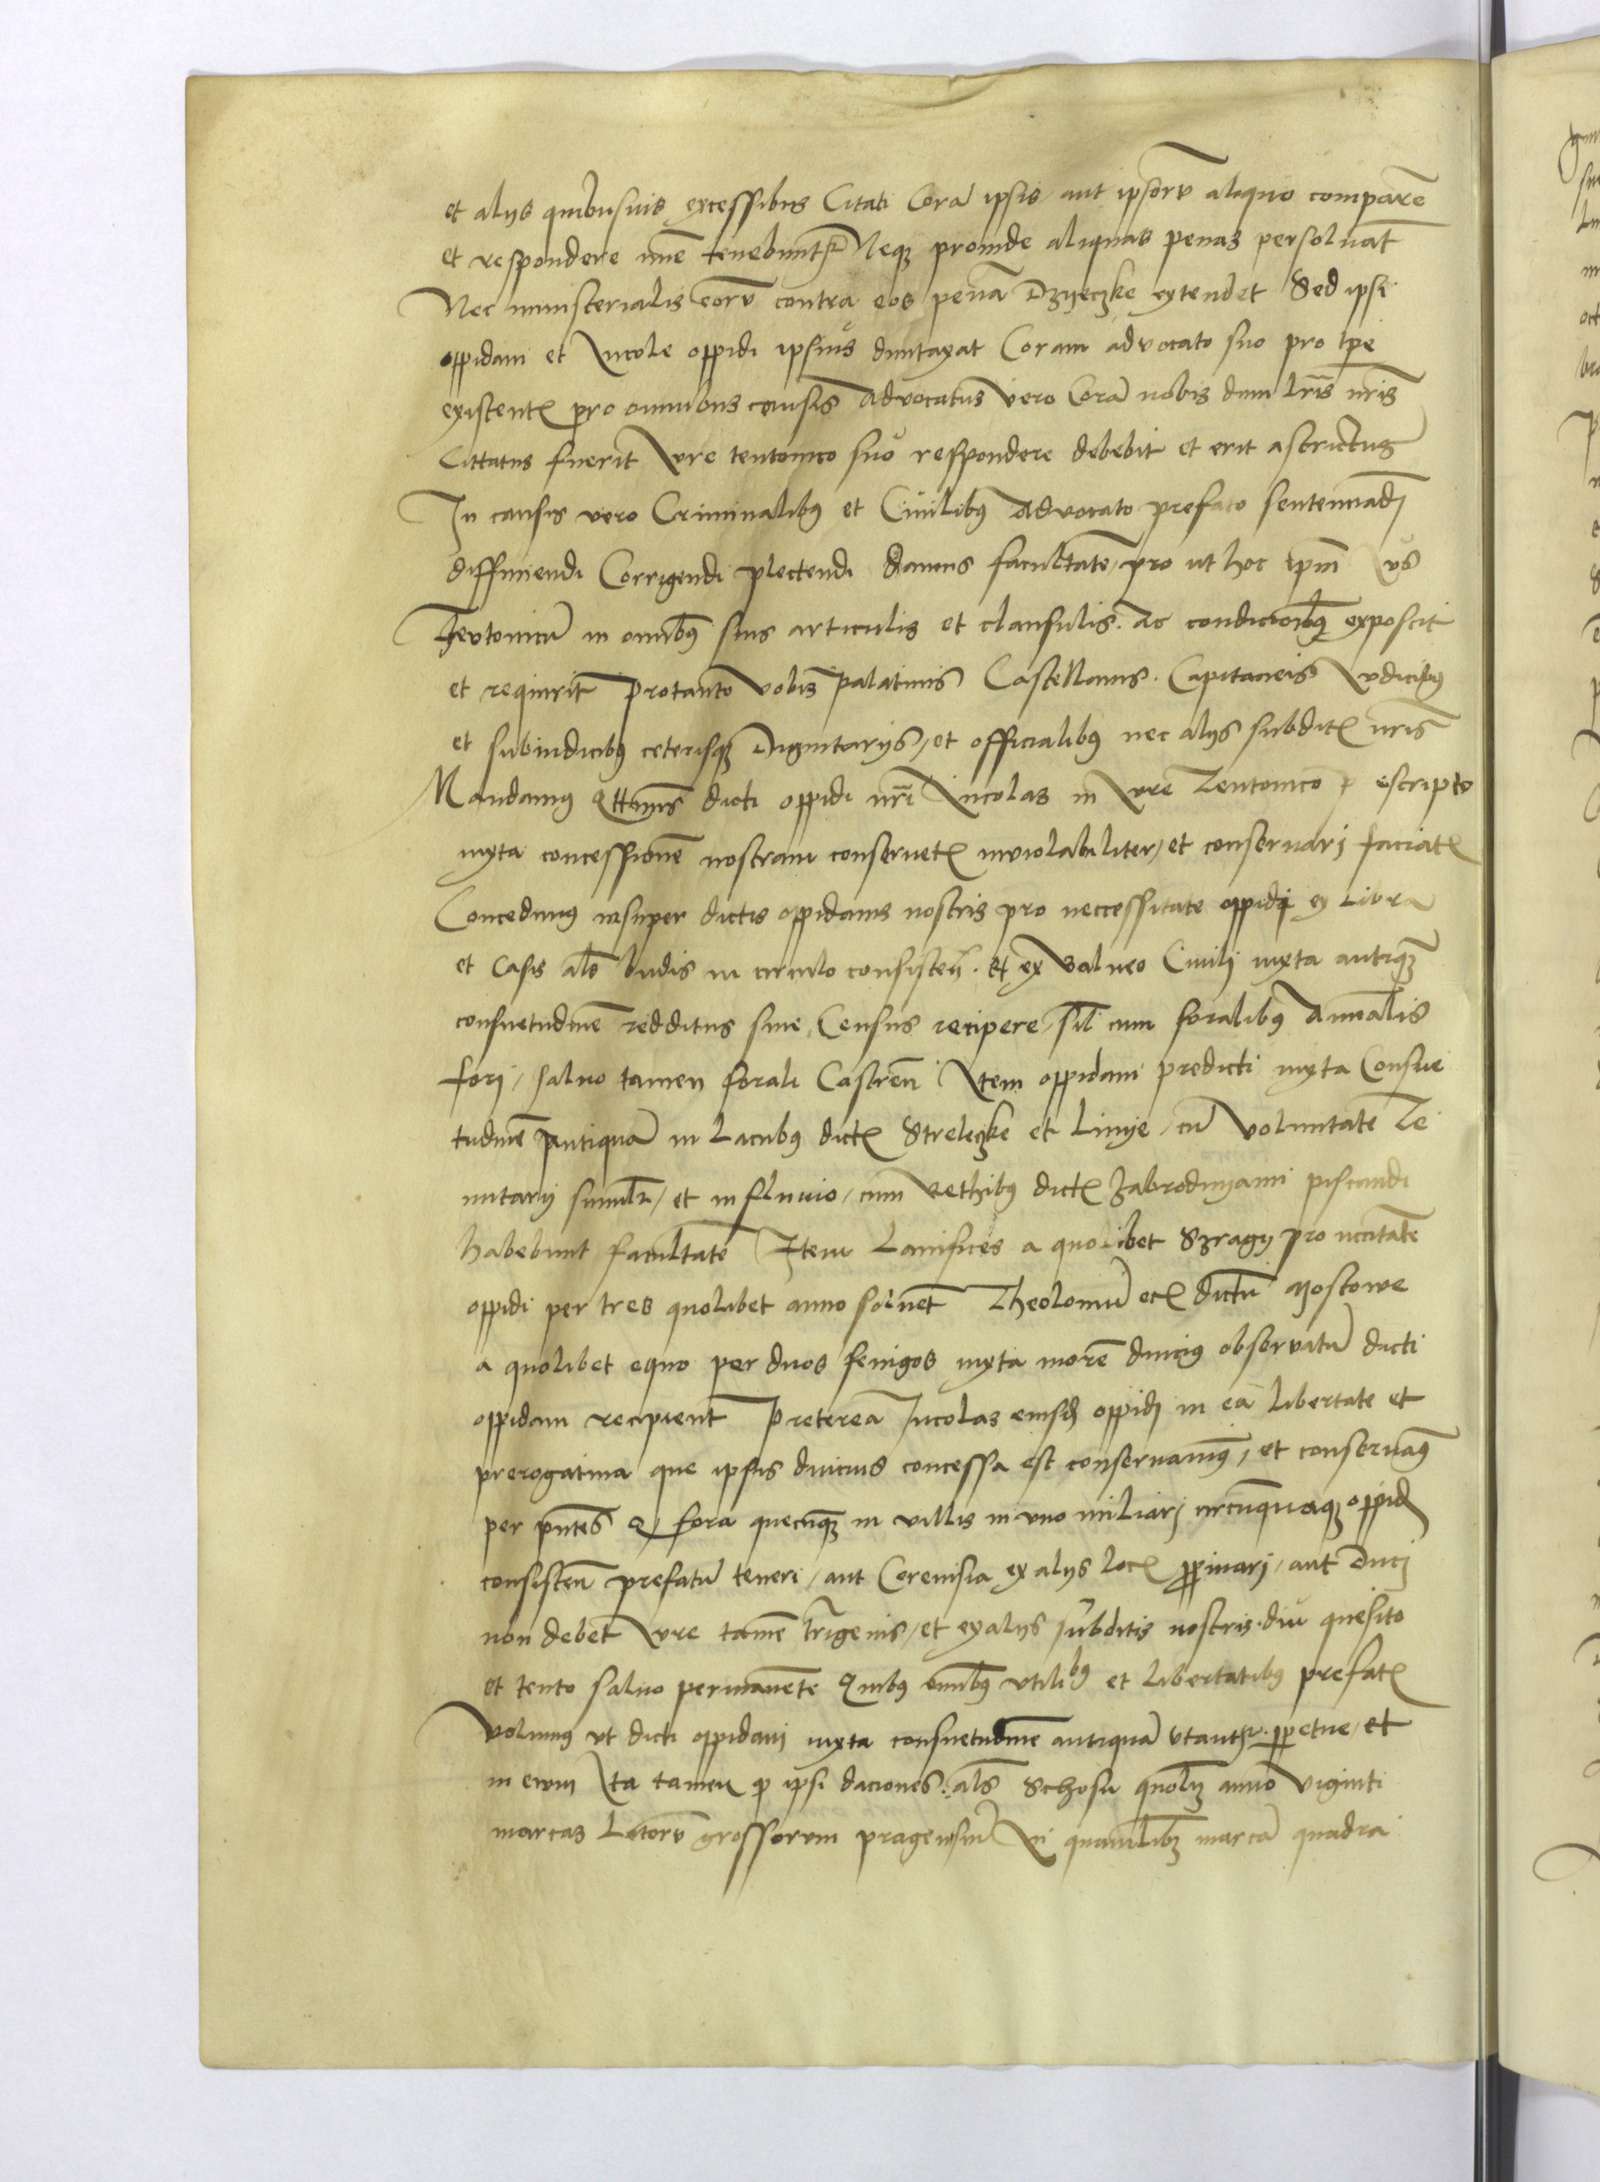 et alijs quibusuis excessibus Citati Corā ipsis aut ipsorū aliquo comparē
et respondere mīe tenebuntr Neq; proinde aliquas penas persoluāt
Nec ministerialis eorū contra eos penā Dzyeczke extendet Sed ipsi
oppidani et Incole oppidi ipsius duntaxat Coram advocato suo pro tpe
existentꝭ pro omnibus causis Advocatus vero Corā nobis dum lrīs nrīs
Cittatus fuerit Iure teutonico suo respondere debebit et erit astrictus
In causis vero Criminalibꝰ et Ciuilibꝰ Advocato prefato sentenciadj
diffiniendi Corrigendi plectendi damus facultatē pro ut hoc ipm̄ Ius
Tevtonicū in omībꝰ suis articulis et clausulis. Ac condicionibꝰ exposcit
et requirit Protanto vobis palatinis Castellanis. Capitaneis Iudicibꝰ
et subiudicibꝰ ceterisq; Dignitarijs, et officialibꝰ nec alijs subditꝭ nrīs
Mandamꝰ Qttinus dicti oppidi nrī Incolas in Iure Teutonico p escripto
iuxta concessionē nostram conseruetꝭ inviolabiliter, et conseruarj faciatꝭ
Concedimus insuper dictis oppidanis nostris pro neccessitate oppidi ex Libra
et Casis als budis in circulo consisten̄. Et ex Balneo Ciuilj iuxta antiquā
consuetudinē redditus siue Census recipere, sīl cum foralibꝰ Annualis
forj, saluo tamen forali Castren̄ Item oppidani predicti iuxta Consue
tudinē Antiquā in Lacubꝰ dictꝭ Streleczke et Linye, cū Voluntate Te
nutarij simulr, et in fluuio, cum Rethibꝰ dictꝭ Zabrodnyami piscandi
habebunt facultatē Item Lanifices a quolibet Szragy pro vtilitate
oppidi per tres quolibet anno soluēt Theolomiū ecꝭ dictū Mostowe
a quolibet equo per duos fenigos iuxta morē diucius observatū dicti
oppidani recipient Preterea Incolas eiusd oppidj in eā libertate et
prerogatiua que ipsis diucius concessa est conseruamꝰ, et conseruamꝰ
per pntes Q fora quecūq; in villis in vno miliarj circūquaq; oppidū
consisten̄ prefatū teneri, aut Cereuisia ex alijs locꝭ ꝓpinarj, aut Ducj
non debēt Iure tamē trigenis, et ex alijs subditis nostris. diu quesito
et tento saluo permanente Quibꝰ omībꝰ vtilibꝰ et Libertatibꝰ prefatꝭ
volumus vt dicti oppidanj iuxta consuetudinē antiquā vtantr. ꝑpetue, et
in evm Ita tamen qp ipsi daciones. als Schosu quolz anno Viginti
marcas Latorū grossorvm pragensiū In quamlibz marcā quadra